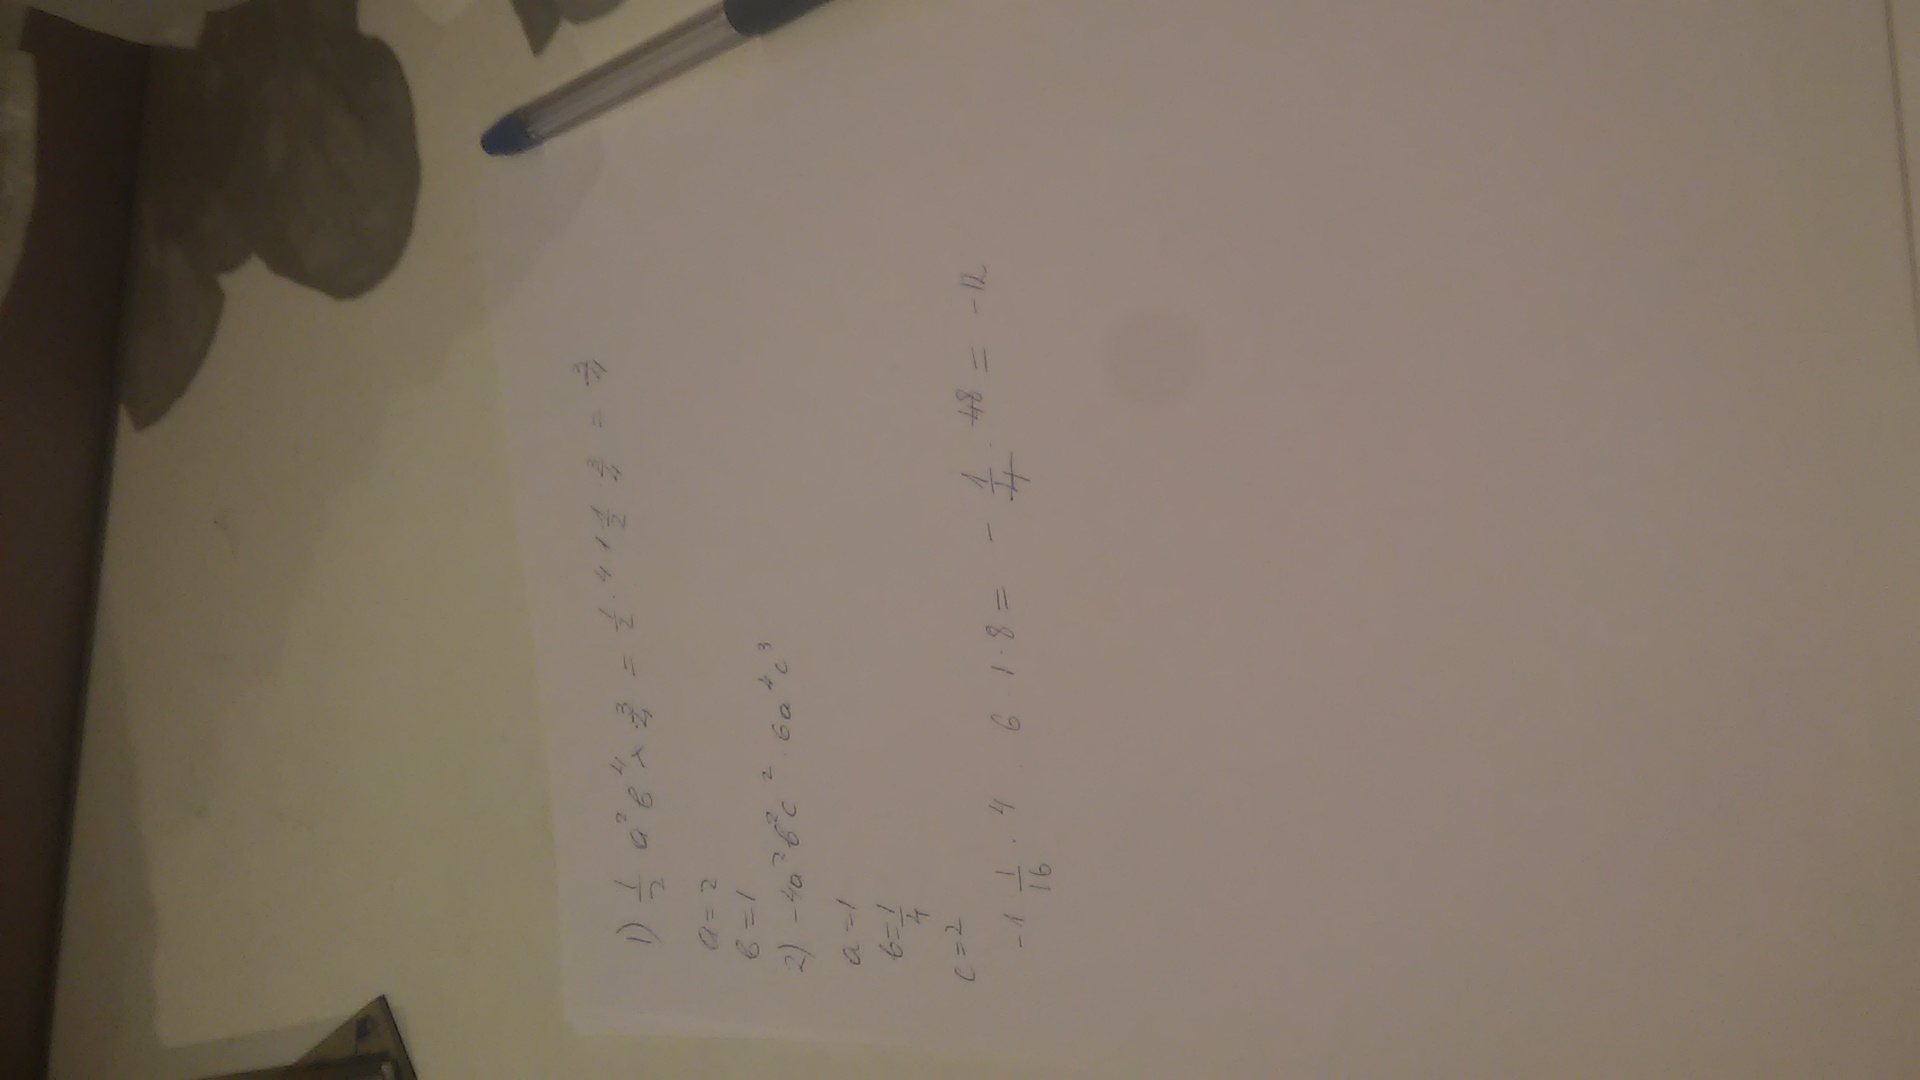 1) 1/2 a²b⁴ × 3/4 = 1/2 · 4 · 1 1/2 3/4 = 3/4
a = 2
b = 1
2) -4a²b²c² · 6a⁴c³
a = 1
b = 1/4
c = 2
-1 1/16 · 4 6 · 1 · 8 = - 1/4 · 48 = -12